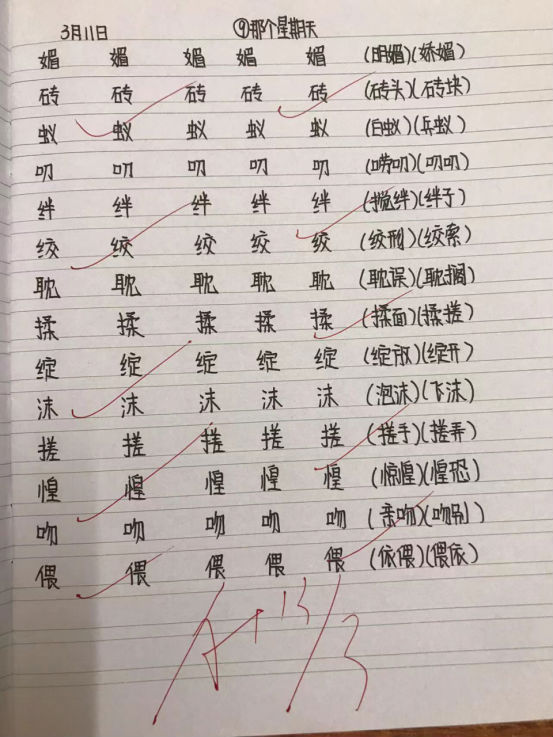 3月11日 ⑨那个星期天
媚 媚 媚 媚 媚 (明媚)(娇媚)
砖 砖 砖 砖 砖 (砖头)(砖块)
蚁 蚁 蚁 蚁 蚁 (白蚁)(兵蚁)
叨 叨 叨 叨 叨 (唠叨)(叨叨)
绊 绊 绊 绊 绊 (搅绊)(绊子)
绞 绞 绞 绞 绞 (绞刑)(绞索)
耽 耽 耽 耽 耽 (耽误)(耽搁)
揉 揉 揉 揉 揉 (揉面)(揉搓)
绽 绽 绽 绽 绽 (绽放)(绽开)
沫 沫 沫 沫 沫 (泡沫)(飞沫)
搓 搓 搓 搓 搓 (搓手)(搓弄)
惶 惶 惶 惶 惶 (惊惶)(惶恐)
吻 吻 吻 吻 吻 (亲吻)(吻别)
偎 偎 偎 偎 偎 (依偎)(偎依)
A+ 13/3